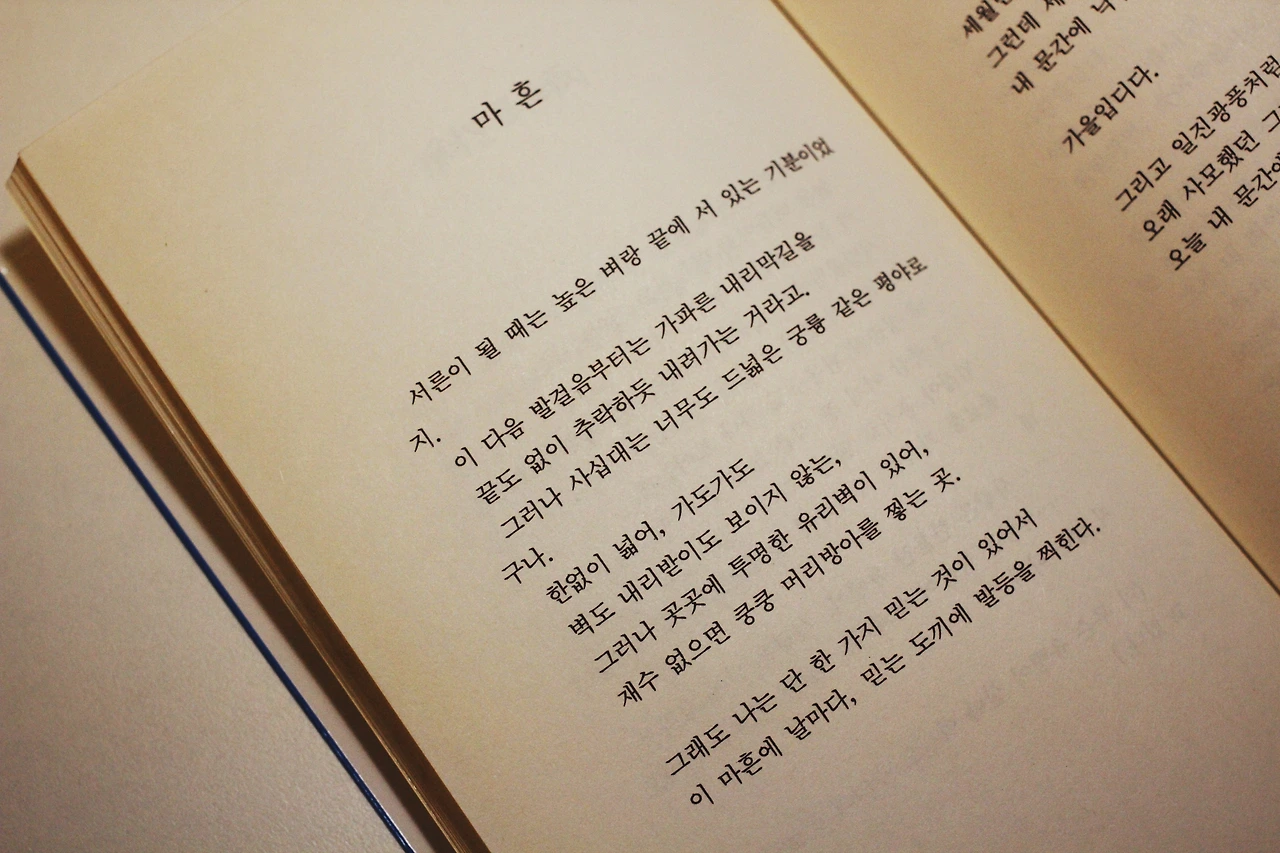 마흔
서른이 될 때는 높은 벼랑 끝에 서 있는 기분이었
지.
이 다음 발걸음부터는 가파른 내리막길을
끝도 없이 추락하듯 내려가는 거라고.
그러나 사십대는 너무도 드넓은 궁륭 같은 평야로
구나.
한없이 넓어, 가도가도
벽도 내리받이도 보이지 않는,
그러나 곳곳에 투명한 유리벽이 있어,
재수 없으면 쿵쿵 머리방아를 찧는 곳.
그래도 나는 단 한 가지 믿는 것이 있어서
이 마흔에 날마다, 믿는 도끼에 발등을 찍힌다.
그런데
내 문간에
가을입디다.
그리고 일진광풍처럼
오래 사모했던
오늘 내 문간에